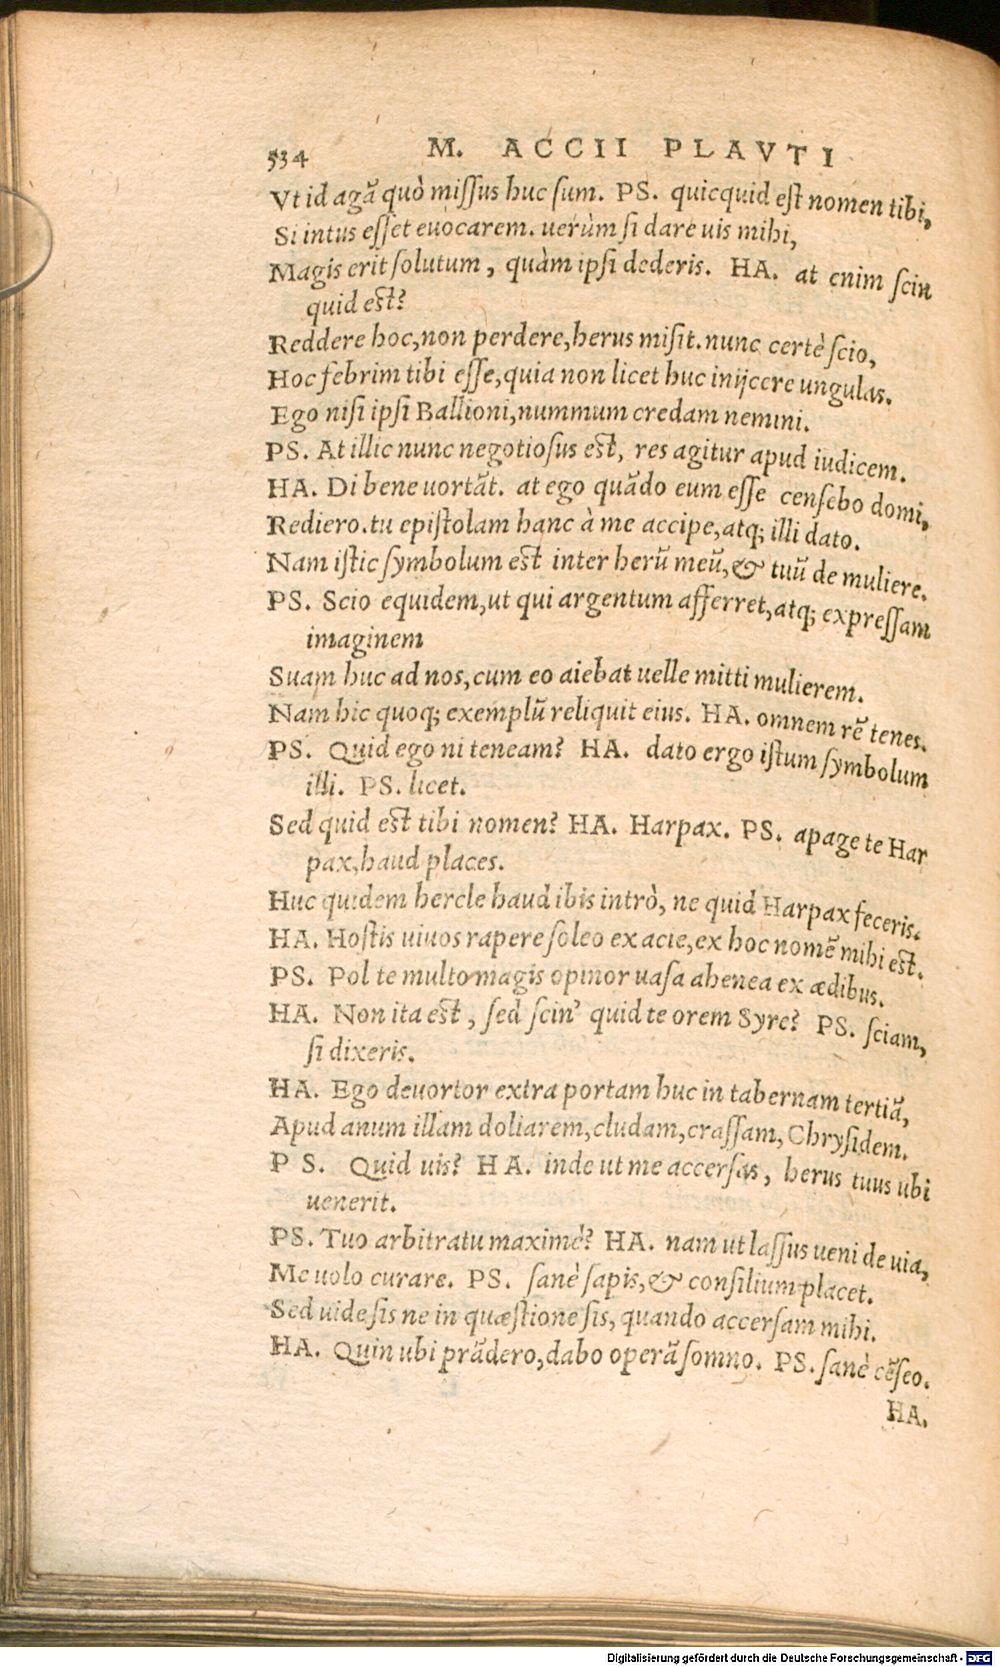 534 M. ACCII PLAVTI
Vt id agã quò missus huc sum. PS. quicquid est nomen tibi,
Si intus esset euocarem. uerùm si dare uis mihi,
Magis erit solutum, quàm ipsi dederis. HA. at enim scin
quid est?
Reddere hoc, non perdere, herus misit. nunc certè scio,
Hoc febrim tibi esse, quia non licet huc inijcere ungulas.
Ego nisi ipsi Ballioni, nummum credam nemini.
PS. At illic nunc negotiosus est, res agitur apud iudicem.
HA. Di bene uortãt. at ego quãdo eum esse censebo domi,
Rediero. tu epistolam hanc à me accipe, atq; illi dato.
Nam istic symbolum est inter herũ meũ, & tuũ de muliere.
PS. Scio equidem, ut qui argentum afferret, atq; expressam
imaginem
Suam huc ad nos, cum eo aiebat uelle mitti mulierem.
Nam hic quoq; exemplũ reliquit eius. HA. omnem rẽ tenes.
PS. Quid ego ni teneam? HA. dato ergo istum symbolum
illi. PS. licet.
Sed quid est tibi nomen? HA. Harpax. PS. apage te Har
pax, haud places.
Huc quidem hercle haud ibis intrò, ne quid Harpax feceris.
HA. Hostis uiuos rapere soleo ex acie, ex hoc nomẽ mihi est.
PS. Pol te multo magis opinor uasa ahenea ex ædibus.
HA. Non ita est, sed scin' quid te orem Syre? PS. sciam,
si dixeris.
HA. Ego deuortor extra portam huc in tabernam tertiã,
Apud anum illam doliarem, cludam, crassam, Chrysidem.
PS. Quid uis? HA. inde ut me accersas, herus tuus ubi
uenerit.
PS. Tuo arbitratu maximè? HA. nam ut lassus ueni de uia,
Me uolo curare. PS. sanè sapis, & consilium placet.
Sed uide sis ne in quæstione sis, quando accersam mihi.
HA. Quin ubi prãdero, dabo operã somno. PS. sanè cẽseo.
HA.
Digitalisierung gefördert durch die Deutsche Forschungsgemeinschaft - DFG